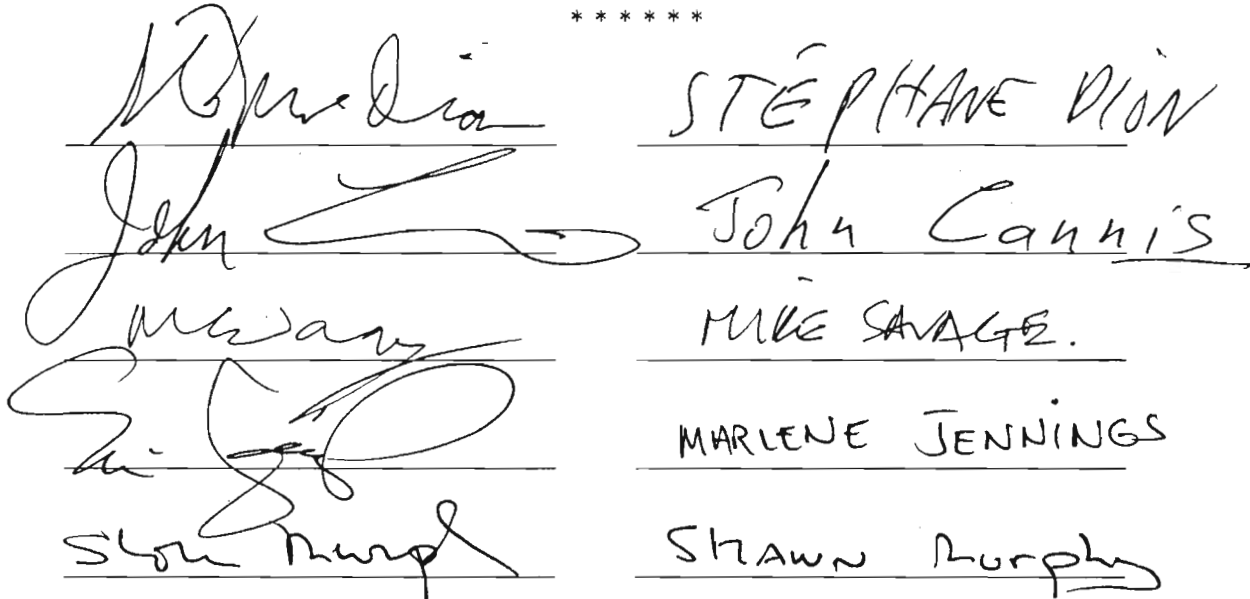 * * * * * *
STÉPHANE DION
John John Cannis
MIKE SAVAGE.
MARLENE JENNINGS
Shawn Murphy SHAWN Murphy